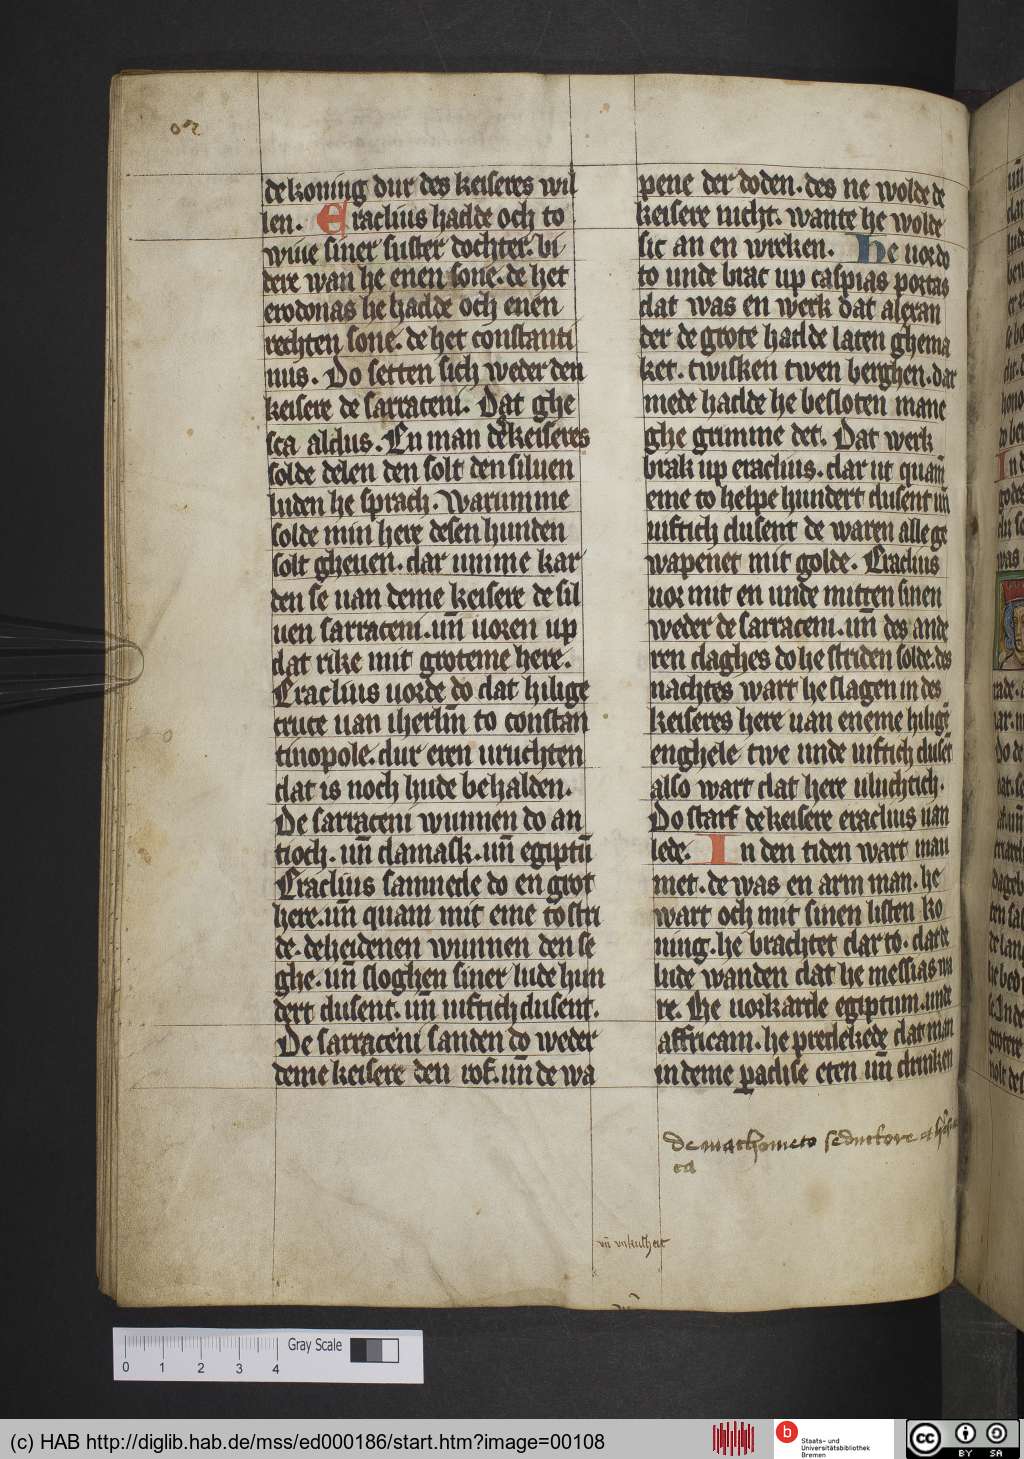 de koning dur des keiseres wil
len. Eraclius hadde och to
wiue siner suster dochter. bi
dere wan he enen sone. de het
erodonas he hadde och enen
rechten sone. de het constanti
nus. Do setten sich weder den
keisere de sarraceni. Dat ghe
sca aldus. En man des keiseres
solde delen den solt den siluen
luden he sprach. Warumme
solde min here desen hunden
solt gheuen. dar umme kar
den se uan deme keisere de sil
uen sarraceni. un̄ uoren up
dat rike mit groteme here.
Eraclius uorde do dat hilige
cruce uan iherl̄m to constan
tinopole. dur eren uruchten
dat is noch hude behalden.
De sarraceni wunnen do an
tioch. un̄ damask. un̄ egiptū
Eraclius samnede do en grot
here. un̄ quam mit eme to stri
de. de heidenen wunnen den se
ghe. un̄ sloghen siner lude hun
dert dusent. un̄ uiftich dusent.
De sarraceni sanden do weder
deme keisere den rof. un̄ de wa
pene der doden. des ne wolde de
keisere nicht. wante he wolde
sic an en wreken. He uor do
to unde brac up caspias portas
dat was en werk dat alexan
der de grote hadde laten ghema
ket. twisken twen berghen. dar
mede hadde he besloten mane
ghe grimme det. Dat werk
brak up eraclius. dar ut quam̄
eme to helpe hundert dusent un̄
uiftich dusent de waren alle ge
wapenet mit golde. Eraclius
uor mit en unde mitten sinen
weder de sarraceni. un̄ des ande
ren daghes do he striden solde. des
nachtes wart he slagen in des
keiseres here uan eneme hiligē
enghele twe unde uiftich dusēt
also wart dat here uluchtich.
Do starf de keisere eraclius uan
lede. In den tiden wart mau
met. de was en arm man. he
wart och mit sinen listen ko
ning. he brachtet dar to. dat de
lude wanden dat he messias wa
re. He uorkarde egiptum. unde
affricam. he predekede dat man
in deme ꝑadise eten un̄ drinken
de machometo seductore et
un̄ unkuscheit